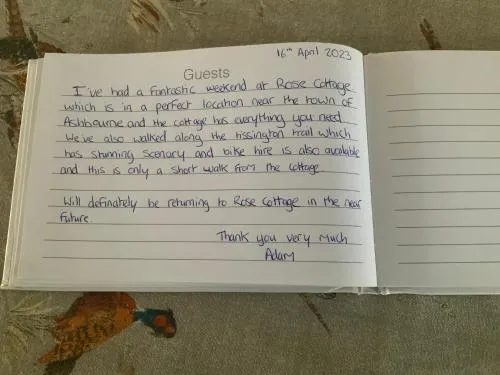 16th April 2023
Guests
I've had a fantastic weekend at Rose Cottage
which is in a perfect location near the town of
Ashbourne and the cottage has everything you need
We've also walked along the tissington trail which
has stunning scenary and bike hire is also available
and this is only a short walk from the cottage.
Will definately be returning to Rose Cottage in the near
future.
Thank you very much
Adam